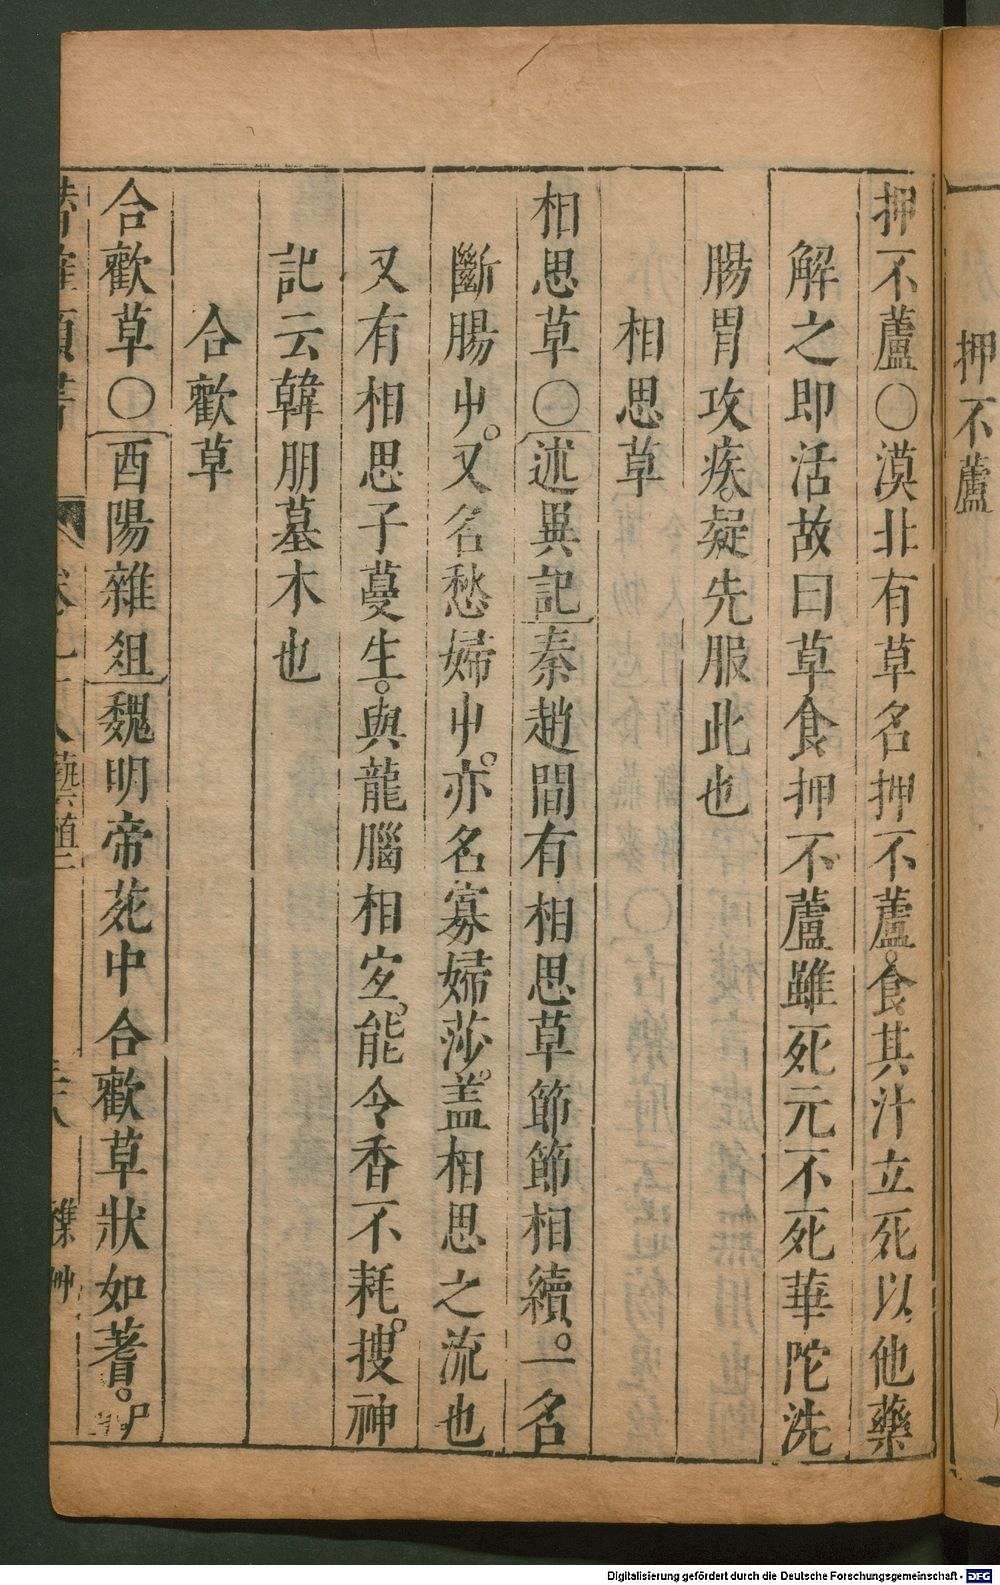 押不蘆
押不蘆〇漠北有草名押不蘆。食其汁立死以他藥
解之即活故曰草食押不蘆雖死元不死華陀洗
腸胃攻疾。疑先服此也
相思草
相思草〇述異記秦趙間有相思草節節相續。一名
斷腸屮。又名愁婦屮。亦名寡婦莎。盖相思之流也
又有相思子蔓生。與龍腦相宜。能令香不耗。搜神
記云韓朋墓木也
合歡草
合歡草〇酉陽雜俎魏明帝苑中合歡草狀如蓍。
藝植二
Digitalisierung gefördert durch die Deutsche Forschungsgemeinschaft - DFG